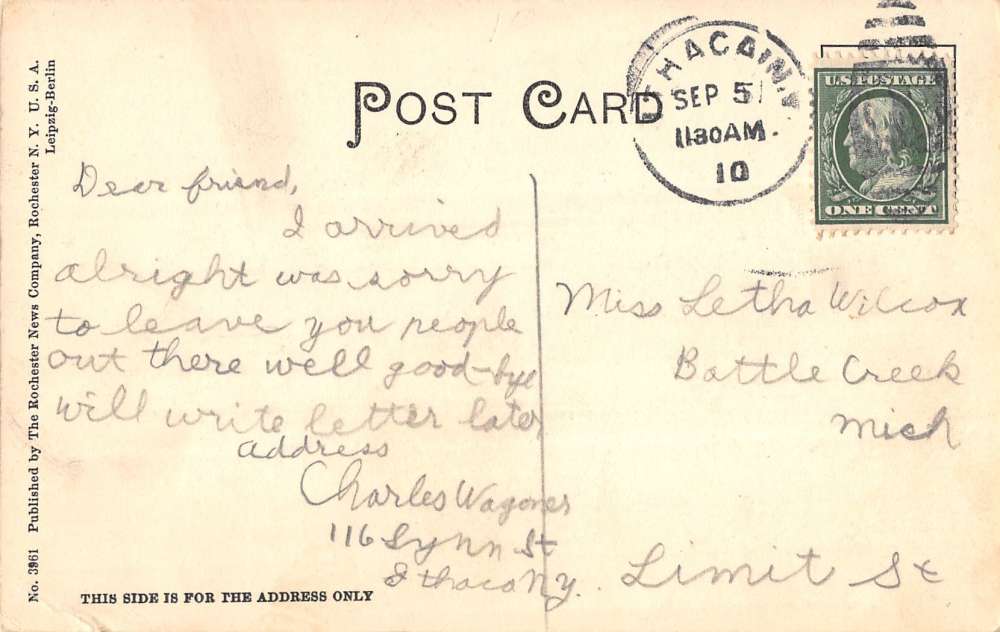 No. 3961 Published by The Rochester News Company, Rochester N. Y. U. S. A.
Leipzig-Berlin
POST CARD
ITHACA, N.Y.
SEP 5
1130AM
10
U.S. POSTAGE
ONE CENT
Dear friend,
I arrived
alright was sorry
to leave you people
out there well good-bye
will write letter later
address
Charles Wagoner
116 Lynn St
Ithaca N.Y.
Miss Letha Wilcox
Battle Creek
Mich
Limit St
THIS SIDE IS FOR THE ADDRESS ONLY